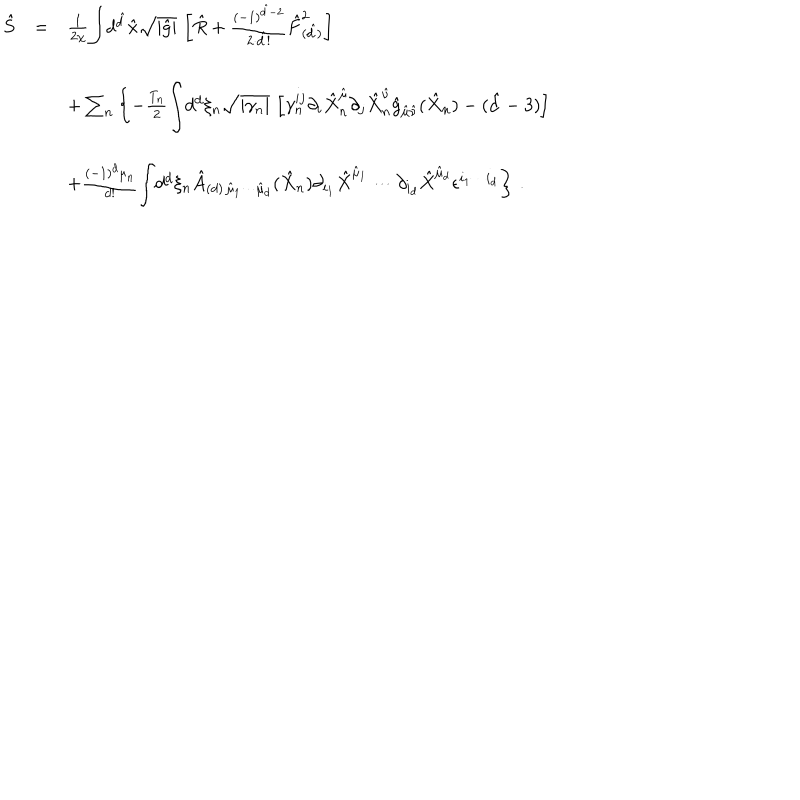 \hat{S} = \frac{1}{2\chi} \int d^{\hat{d}} \hat{x} \sqrt{|\hat{g}|} \left[ \hat{R} + \frac{(-1)^{\hat{d}-2}}{2\, \hat{d}!} \hat{F}^2_{(\hat{d})} \right]
+ \sum_n \left\{ -\frac{T_n}{2} \int d^d \xi_n \sqrt{|\gamma_n|} \left[ \gamma_n^{ij} \partial_i \hat{X}_n^{\hat{\mu}} \partial_j \hat{X}_n^{\hat{\nu}} \hat{g}_{\hat{\mu}\hat{\nu}} (\hat{X}_n) - (\hat{d} - 3) \right] \right.
\left. + \frac{(-1)^d \mu_n}{d!} \int d^d \xi_n \hat{A}_{(d)\, \hat{\mu}_1 \cdots \hat{\mu}_d} (\hat{X}_n) \partial_{i_1} \hat{X}^{\hat{\mu}_1} \cdots \partial_{i_d} \hat{X}^{\hat{\mu}_d} \epsilon^{i_1 \cdots i_d} \right\} .